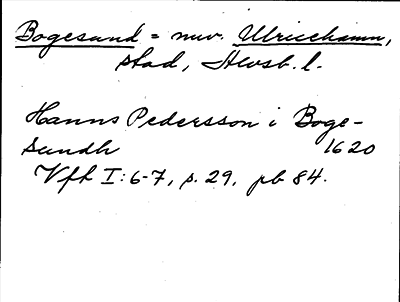 Bogesund = nuv. Ulricehamn,
stad, Älvsb. l.
Hanns Pedersson i Boge-
sundh 1620
Vft I:6-7, s. 29, pb 84.